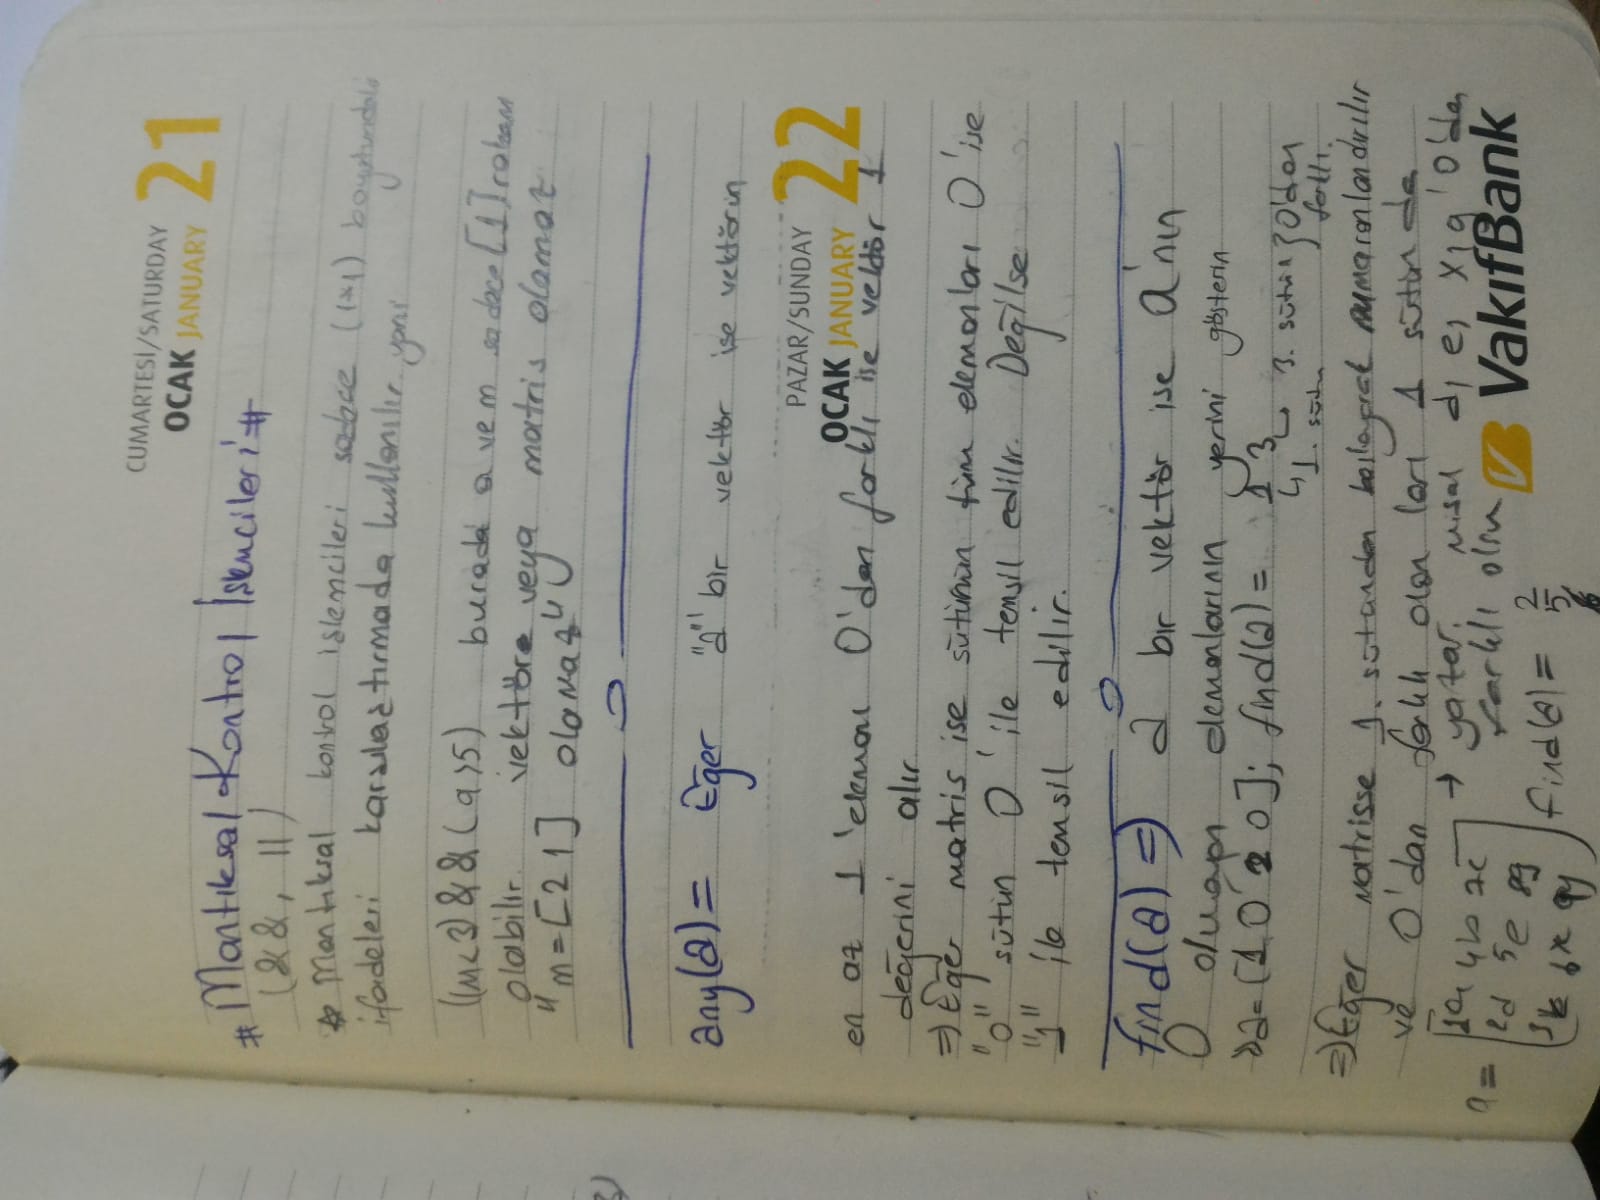 CUMARTESİ/SATURDAY
OCAK JANUARY 21
# Mantıksal Kontrol İşlemcileri #
(&&, ||)
* Mantıksal kontrol işlemcileri sadece (1x1) boyutundaki
ifadeleri karşılaştırmada kullanılır yani
(m<3) && (a>5) burada a ve m sadece [1] rakam
olabilir. vektöre veya matris olamaz
"m=[2 1] olamaz"
any(a)= Eğer "a" bir vektör ise vektörün
PAZAR/SUNDAY
OCAK JANUARY 22
en az 1 eleman 0'dan farklı ise vektör 1
değerini alır
=) Eğer matris ise sütunun tüm elemanları 0'ise
"0" sütun 0'ile temsil edilir. Değilse
"1" ile temsil edilir.
find(a) =) a bir vektör ise a'nın
0 olmayan elemanlarının yerini gösterin
>>a=[1 0 2 0]; find(a)= 1 3
1. sütun 3. sütun } 0'dan farklı.
=) Eğer matrisse 1. sutandan başlayarak numaralandırılır
ve 0'dan farklı olan ları 1 sütun da
yatar. misal d, e, x, g '0'dan
farklı olsun
a = find(a) = 2 5
VakıfBank